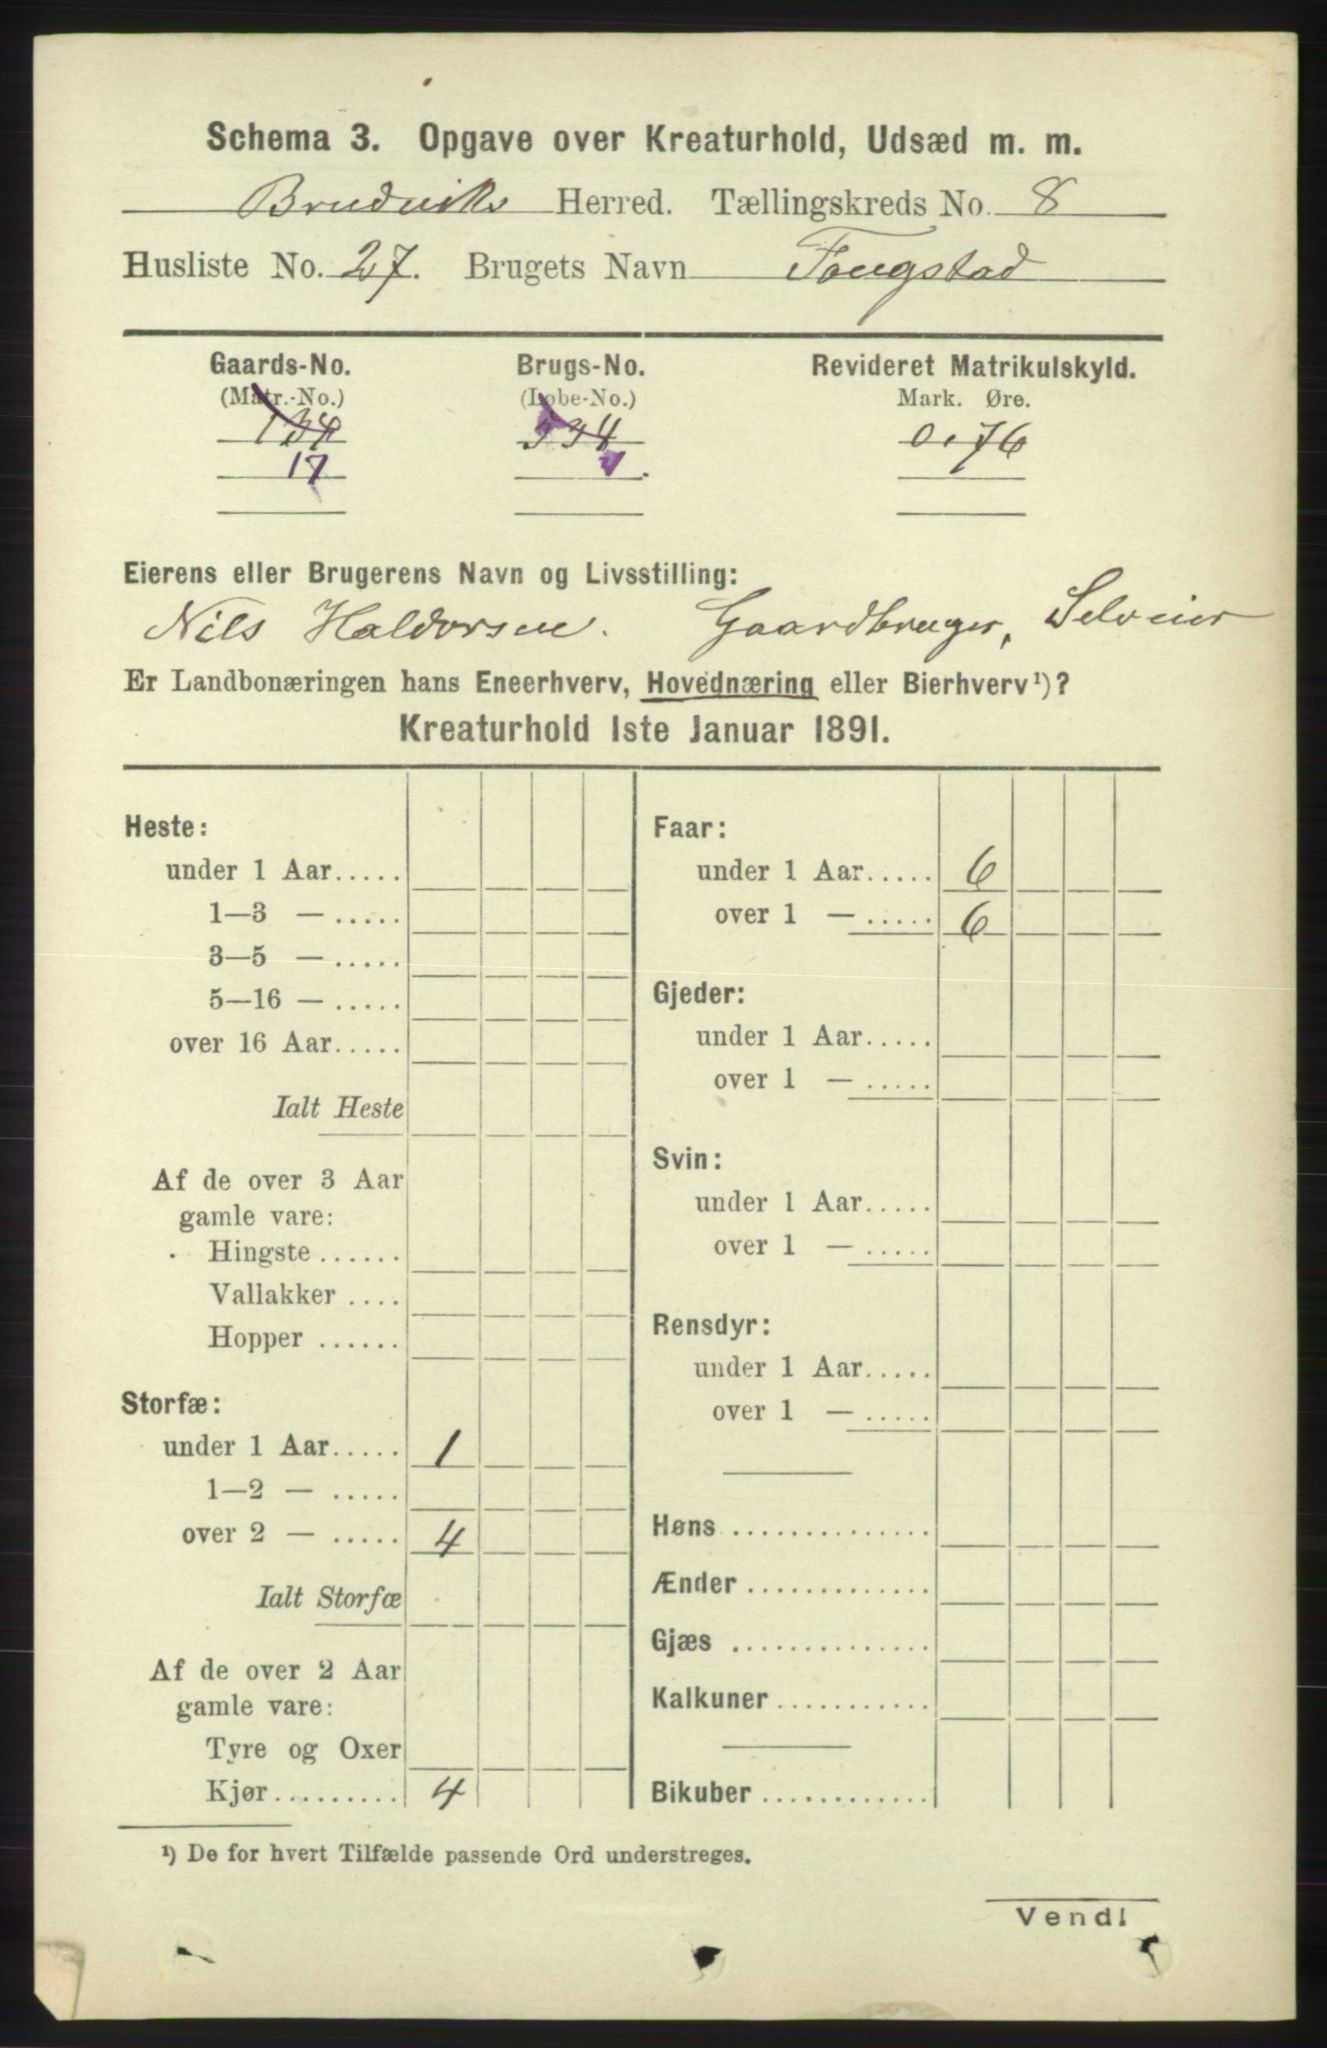 Schema 3. Opgave over Kreaturhold, Udsæd m. m.
Brudviks Herred. Tællingskreds No. 8
Husliste No. 27. Brugets Navn Fougstad
Gaards-No. Brugs-No. Revideret Matrikulskyld.
(Matr.-No.) (Løbe-No.) Mark. Øre.
134 334 0.76
17
Eierens eller Brugerens Navn og Livsstilling:
Nils Haldorsen. Gaardbruger, Selveier
Er Landbonæringen hans Eneerhverv, Hovednæring eller Bierhverv¹)?
Kreaturhold 1ste Januar 1891.
Heste:
under 1 Aar.....
1—3 — .....
3—5 — .....
5—16 — .....
over 16 Aar.....
Ialt Heste
Af de over 3 Aar
gamle vare:
Hingste......
Vallakker ....
Hopper ......
Storfæ:
under 1 Aar..... 1
1—2 — .....
over 2 — ..... 4
Ialt Storfæ
Af de over 2 Aar
gamle vare:
Tyre og Oxer
Kjør......... 4
Faar:
under 1 Aar..... 6
over 1 — ..... 6
Gjeder:
under 1 Aar.....
over 1 — .....
Svin:
under 1 Aar.....
over 1 — .....
Rensdyr:
under 1 Aar.....
over 1 — .....
Høns ..............
Ænder .............
Gjæs ..............
Kalkuner ...........
Bikuber ............
¹) De for hvert Tilfælde passende Ord understreges.
Vend!